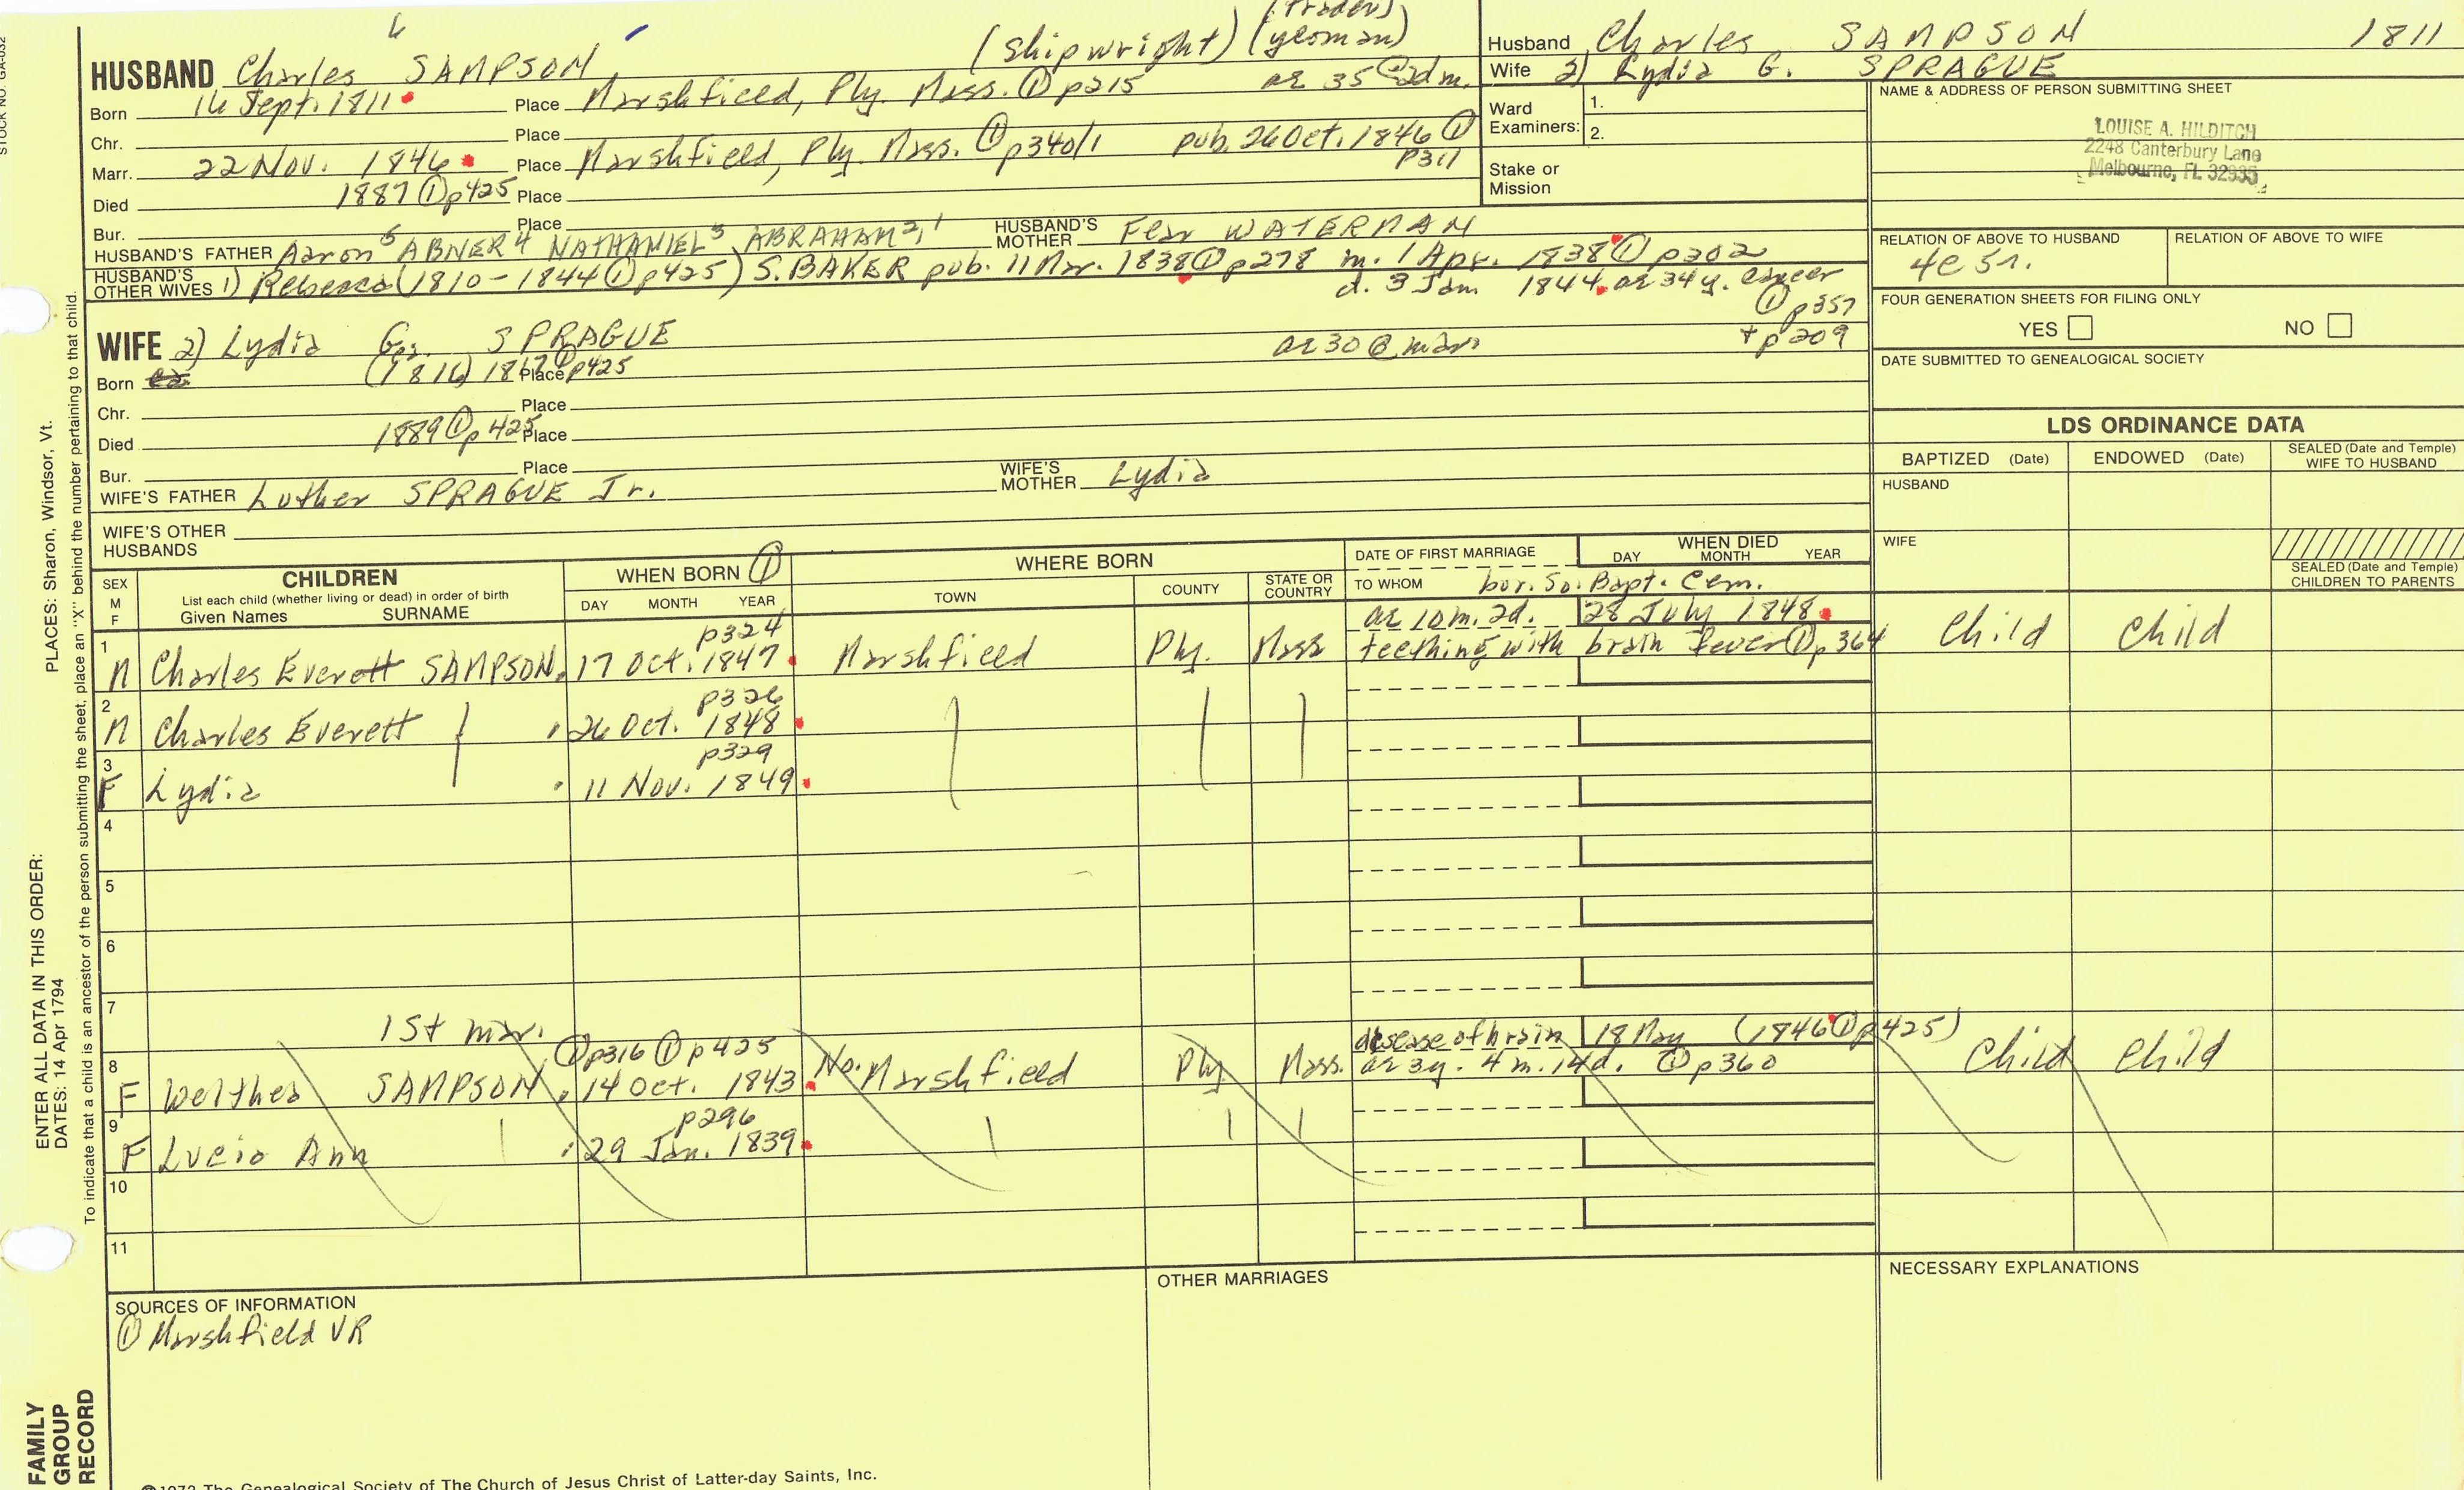 STOCK NO. GA-032
6
(Trader)
HUSBAND Charles SAMPSON (shipwright) (yeoman)
Born 16 Sept. 1811 Place Marshfield, Ply. Mass. ① p215 ae 35 @ 2d m.
Chr. Place
Marr. 22 Nov. 1846 Place Marshfield, Ply. Mass. ① p340/1 pub. 26 Oct. 1846 ① p311
Died 1887 ① p425 Place
Bur. Place
HUSBAND'S FATHER Aaron 5 ABNER 4 NATHANIEL 3 ABRAHAM 2, 1 HUSBAND'S MOTHER Fear WATERMAN
HUSBAND'S OTHER WIVES 1) Rebecca (1810-1844 ① p425) S. BAKER pub. 11 Mar. 1838 ① p278 m. 1 Apr. 1838 ① p302
d. 3 Jan 1844 ae 34 y. cancer
① p357
+ p209
WIFE 2) Lydia Geo. SPRAGUE ae 30 @ marr
Born (1816) 1817 ① p425 Place
Chr. Place
Died 1889 ① p425 Place
Bur. Place
WIFE'S FATHER Luther SPRAGUE Jr. WIFE'S MOTHER Lydia
WIFE'S OTHER HUSBANDS
Husband Charles SAMPSON 1811
Wife 2) Lydia G. SPRAGUE
Ward Examiners: 1.
2.
Stake or Mission
NAME & ADDRESS OF PERSON SUBMITTING SHEET
LOUISE A. HILDITCH
2248 Canterbury Lane
Melbourne, FL 32935
RELATION OF ABOVE TO HUSBAND RELATION OF ABOVE TO WIFE
4c 5r.
FOUR GENERATION SHEETS FOR FILING ONLY
YES NO
DATE SUBMITTED TO GENEALOGICAL SOCIETY
LDS ORDINANCE DATA
BAPTIZED (Date) ENDOWED (Date) SEALED (Date and Temple) WIFE TO HUSBAND
HUSBAND
WIFE
SEALED (Date and Temple) CHILDREN TO PARENTS
SEX M F
CHILDREN
List each child (whether living or dead) in order of birth
Given Names SURNAME
WHEN BORN ①
DAY MONTH YEAR
WHERE BORN
TOWN COUNTY STATE OR COUNTRY
DATE OF FIRST MARRIAGE
TO WHOM
WHEN DIED
DAY MONTH YEAR
bur. So. Bapt. Cem.
p324 ae 10 m. 2d. 28 July 1848
1 M Charles Everett SAMPSON 17 Oct. 1847 Marshfield Ply. Mass teething with brain fever ① p364 Child Child
p326
2 M Charles Everett 26 Oct. 1848
p329
3 F Lydia 11 Nov. 1849
4
5
6
7
1st mar.
① p316 ① p425 disease of brain 18 May (1846 ① p425)
8 F Welthea SAMPSON 14 Oct. 1843 No. Marshfield Ply Mass. ae 3 y. 4 m. 14 d. ① p360 Child Child
p296
9 F Lucia Ann 29 Jan. 1839
10
11
SOURCES OF INFORMATION
① Marshfield VR
OTHER MARRIAGES
NECESSARY EXPLANATIONS
ENTER ALL DATA IN THIS ORDER:
DATES: 14 Apr 1794
PLACES: Sharon, Windsor, Vt.
To indicate that a child is an ancestor of the person submitting the sheet, place an "X" behind the number pertaining to that child.
FAMILY GROUP RECORD
©1972 The Genealogical Society of The Church of Jesus Christ of Latter-day Saints, Inc.